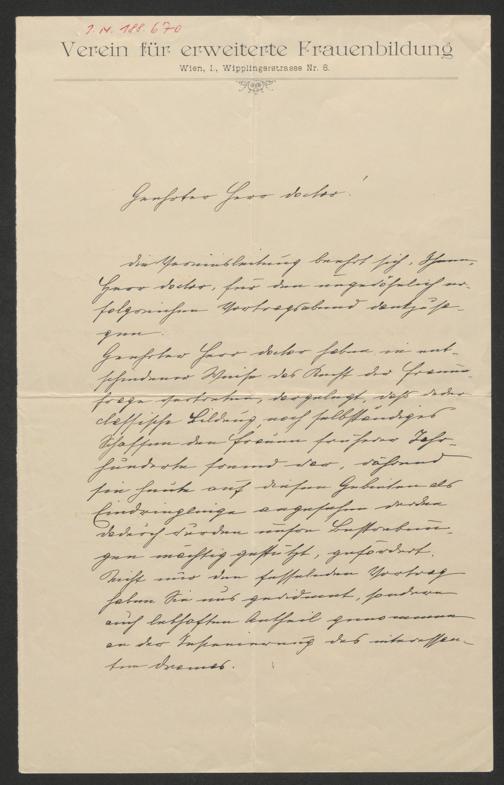 I. N. 188.670
Verein für erweiterte Frauenbildung
Wien, I., Wipplingerstrasse Nr. 8.
Geehrter Herr Doctor!
die Vereinsleitung beehrt sich, Ihnen,
Herr Doctor, für den ungewöhnlich er-
folgreichen Vortragsabend dankzusa-
gen.
Geehrter Herr Doctor haben in ent-
schiedener Weise das Recht der Frauen-
frage vertreten, dargelegt, daß weder
classische Bildung, noch selbständiges
Schaffen den Frauen früherer Jahr-
hunderte fremd war, während
sie heute auf diesen Gebieten als
Eindringlinge angesehen werden
dadurch wurden unsere Bestrebun-
gen mächtig gestützt, gefördert.
Nicht nur den fesselnden Vortrag
haben Sie uns gewidmet, sondern
auch lebhaften Antheil genommen
an der Inscenierung des interessan-
ten Dramas.